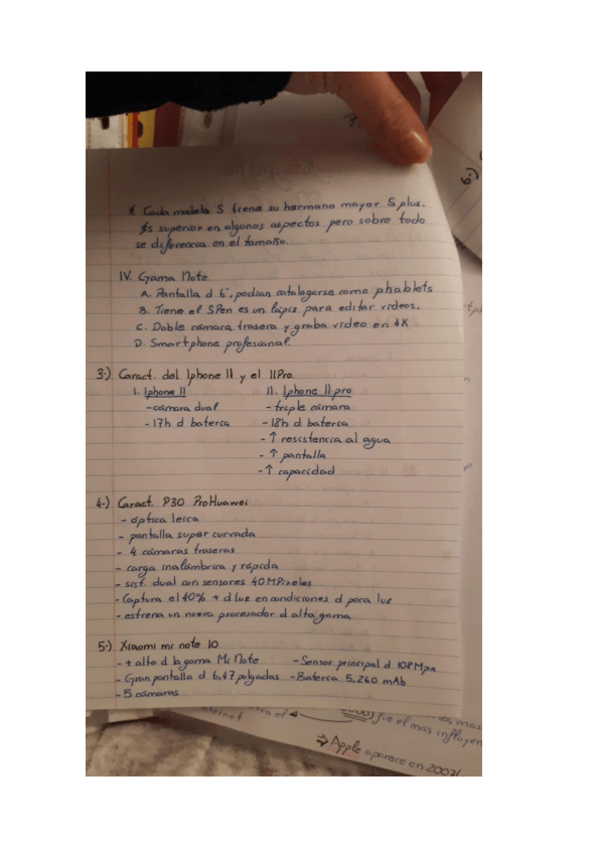 1. Cada modelo S tiene su hermano mayor S plus.
Es superior en algunos aspectos pero sobre todo
se diferencia en el tamaño.
IV. Gama Note
A. Pantalla d 6", podían catalogarse como phablets
B. Tiene el SPen es un lápiz para editar videos.
C. Doble cámara trasera y graba video en 4K
D. Smartphone profesional.
3-) Caract. del Iphone 11 y el 11Pro.
I. Iphone 11
- cámara dual
- 17h d batería
II. Iphone 11 pro
- triple cámara
- 18h d batería
- ↑ resistencia al agua
- ↑ pantalla
- ↑ capacidad
4-) Caract. P30 Pro Huawei
- óptica leica
- pantalla super curvada
- 4 cámaras traseras
- carga inalámbrica y rápida
- sist. dual con sensores 40 MPixeles
- Captura el 40% + d luz en condiciones d poca luz
- estrena un nuevo procesador d alta gama
5-) Xiaomi mi note 10
- + alto d la gama Mi Note
- Gran pantalla d 6,47 pulgadas
- 5 cámaras
- Sensor principal d 108 Mpx
- Batería 5.260 mAh
6-)
fue el más influyen
⇒ Apple aparece en 2007